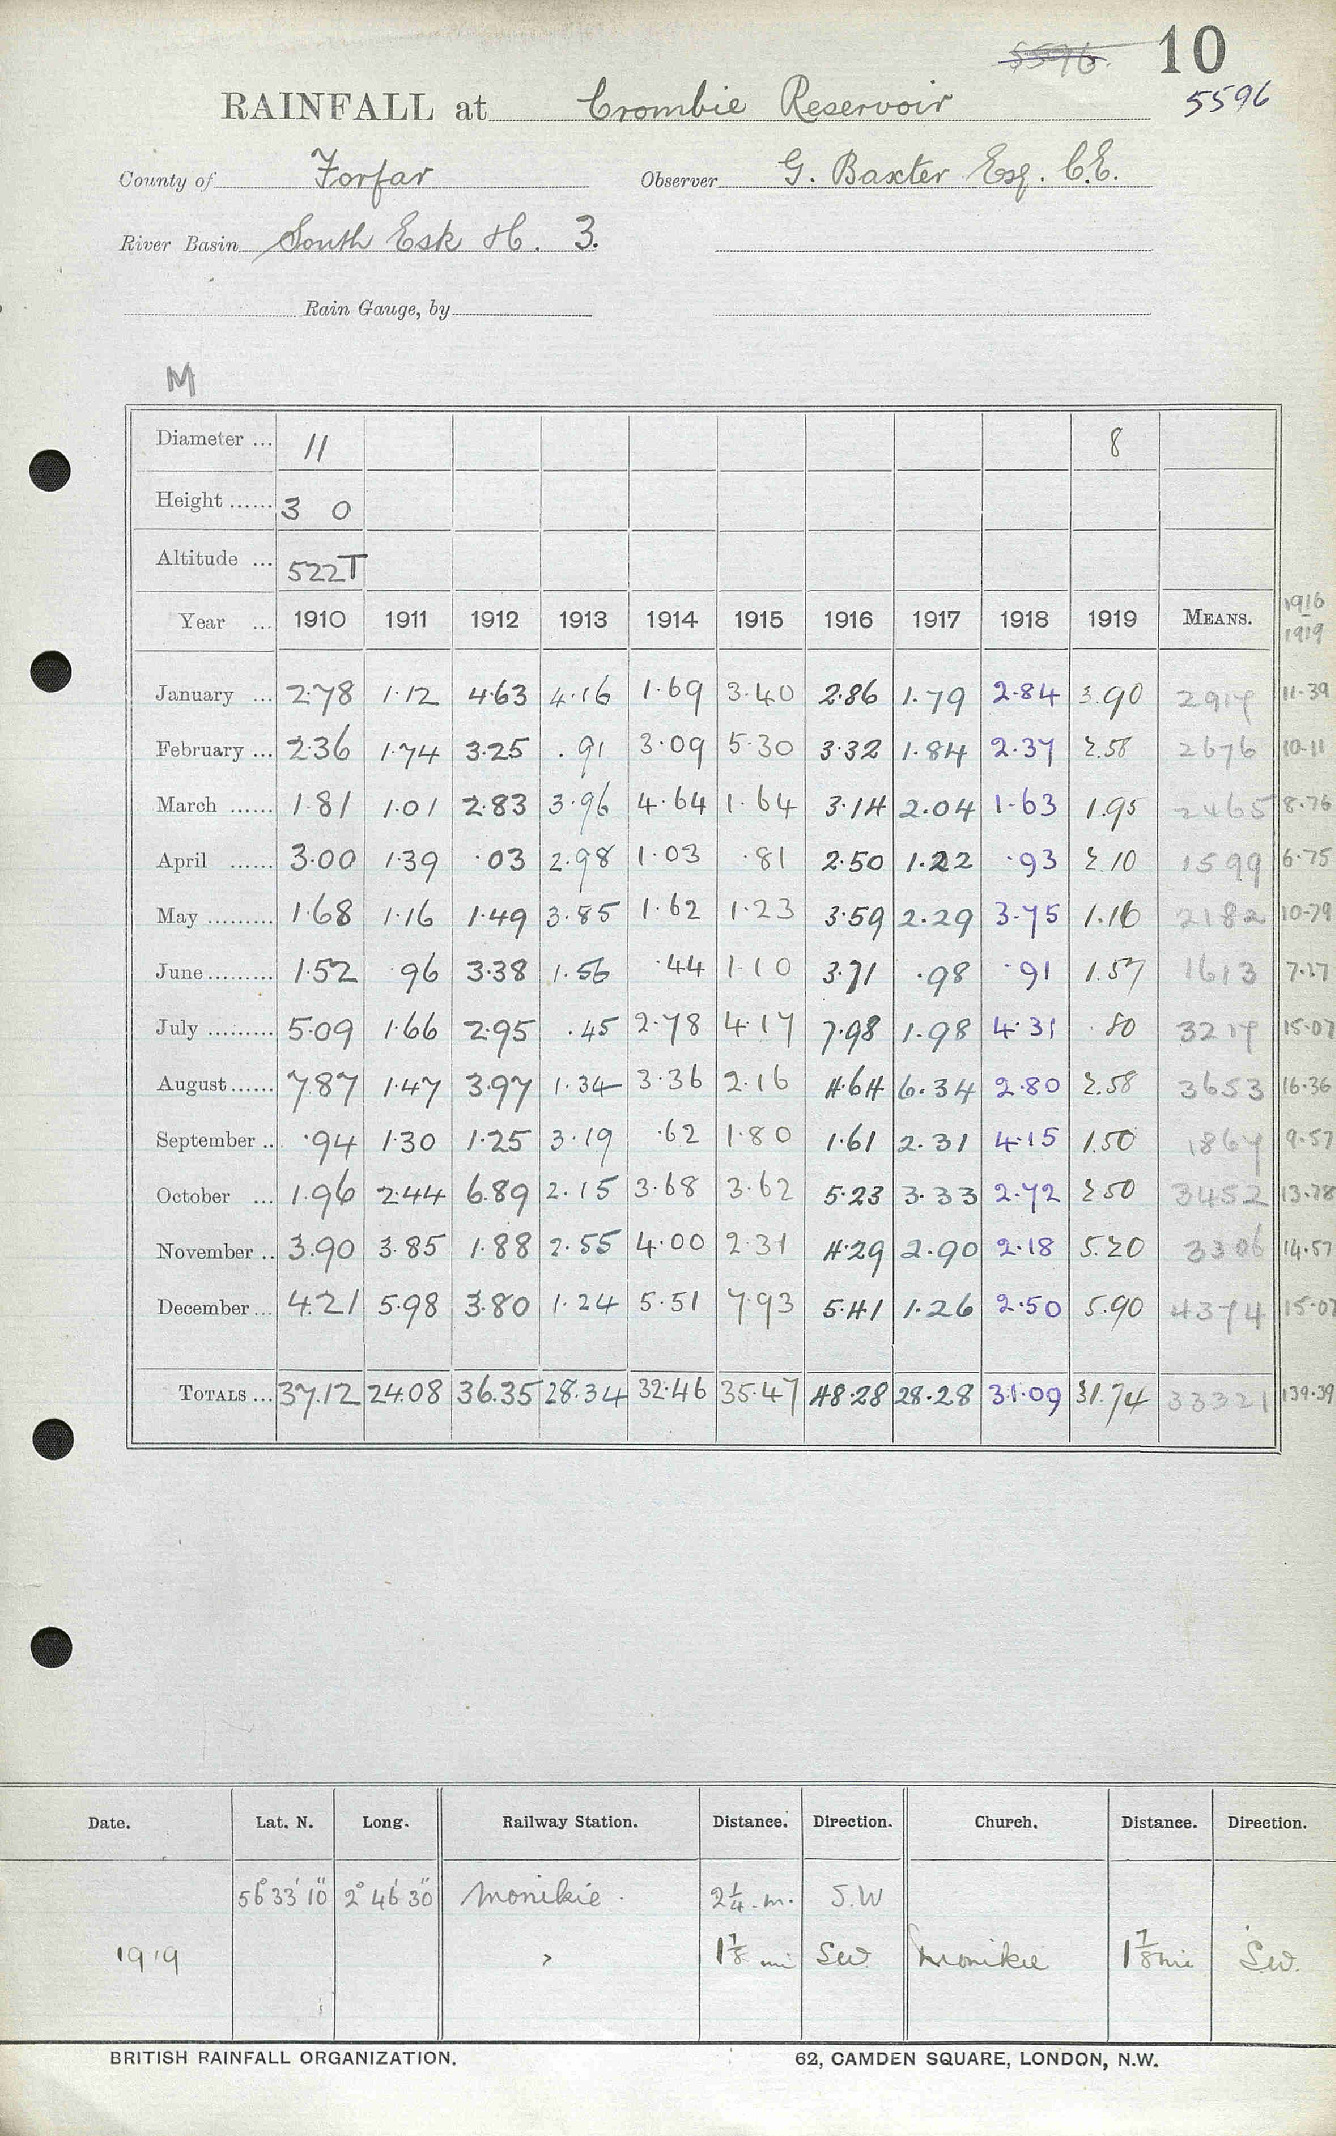 5596. 10
RAINFALL at Crombie Reservoir 5596
County of Forfar Observer G. Baxter Esq. C.E.
River Basin South Esk H. 3.
Rain Gauge, by
M
Diameter ... 11 8
Height ...... 3 0
Altitude ... 522T
Year ... 1910 1911 1912 1913 1914 1915 1916 1917 1918 1919 MEANS. 1916 1919
January ... 2.78 1.12 4.63 4.16 1.69 3.40 2.86 1.79 2.84 3.90 2917 11.39
February ... 2.36 1.74 3.25 .91 3.09 5.30 3.32 1.84 2.37 2.58 2676 10.11
March ...... 1.81 1.01 2.83 3.96 4.64 1.64 3.14 2.04 1.63 1.95 2465 8.76
April ...... 3.00 1.39 .03 2.98 1.03 .81 2.50 1.22 .93 2.10 1599 6.75
May ......... 1.68 1.16 1.49 3.85 1.62 1.23 3.59 2.29 3.75 1.16 2182 10.79
June ......... 1.52 96 3.38 1.56 .44 1.10 3.71 .98 .91 1.57 1613 7.17
July ......... 5.09 1.66 2.95 .45 2.78 4.17 7.98 1.98 4.31 .80 3217 15.07
August ...... 7.87 1.47 3.97 1.34 3.36 2.16 4.64 6.34 2.80 2.58 3653 16.36
September .. .94 1.30 1.25 3.19 .62 1.80 1.61 2.31 4.15 1.50 1867 9.57
October ... 1.96 2.44 6.89 2.15 3.68 3.62 5.23 3.33 2.72 2.50 3452 13.78
November .. 3.90 3.85 1.88 2.55 4.00 2.31 4.29 2.90 2.18 5.20 3306 14.57
December ... 4.21 5.98 3.80 1.24 5.51 7.93 5.41 1.26 2.50 5.90 4374 15.07
TOTALS ... 37.12 24.08 36.35 28.34 32.46 35.47 48.28 28.28 31.09 31.74 33321 139.39
Date. Lat. N. Long. Railway Station. Distance. Direction. Church. Distance. Direction.
56° 33' 10" 2° 46' 30" Monikie. 2¼ m. S.W
1919 " 1⅞ mi SW. Monikie 1⅞ mi SW.
BRITISH RAINFALL ORGANIZATION. 62, CAMDEN SQUARE, LONDON, N.W.